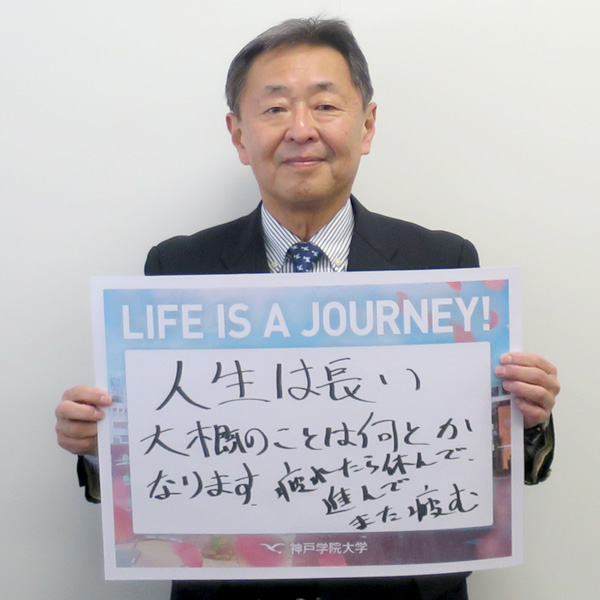 LIFE IS A JOURNEY!
人生は長い
大概のことは何とか
なります. 疲れたら休んで.
進んで
また疲む
神戸学院大学